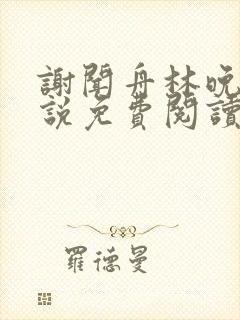 謝聞舟林晚
說免費閱讀
羅德曼